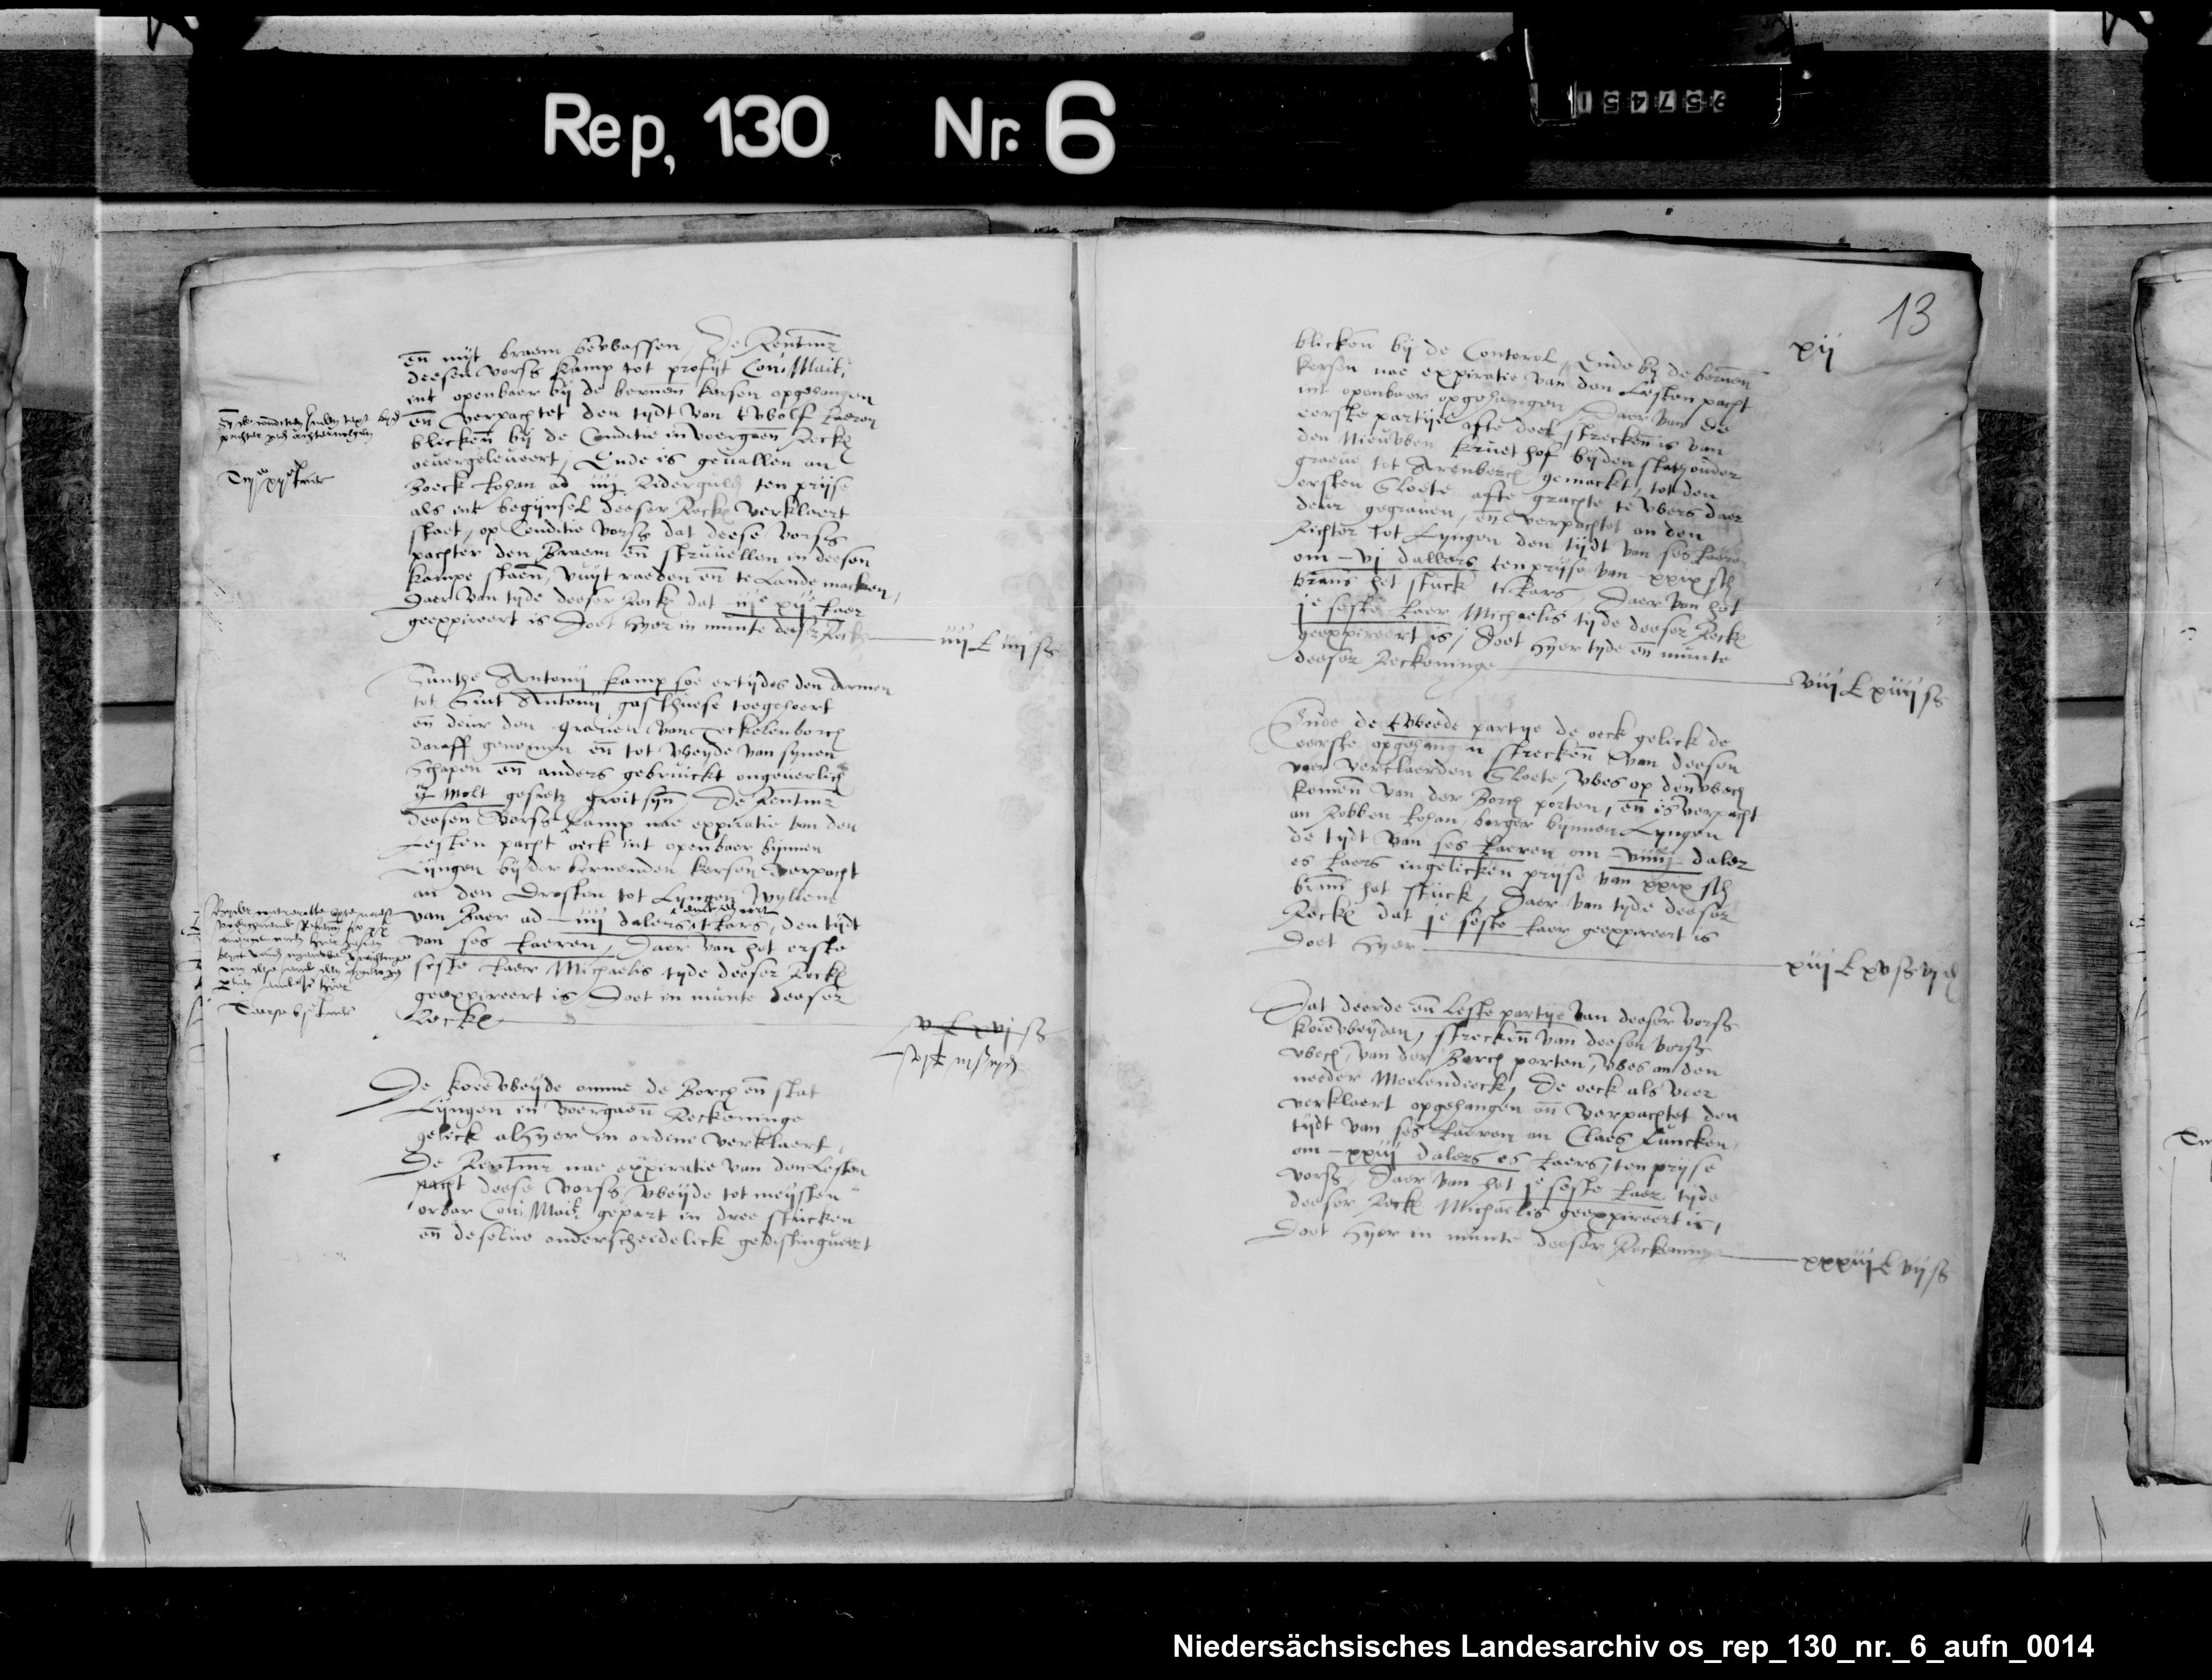 Rep, 130 Nr. 6
957451
en̄ mijt braem bevvassen, De Rentmr
deesen vors kamp tot profijt Con. Mait.
int openbaer bij de bernen kersen opgehangen
en̄ verpachtet den tijdt van tvvolf Jaeren
blicken̄ bij de Conditie in voergaen Reck
overgelevert, Ende is gevallen an
Boeck Johan ad iiij Ridergul ten prijse
als int begijnsel deeser Reck verklaert
staet, op Conditie vors dat deese vors
pachter den Braem en̄ struvellen in deesen
kampe staen, vuijt raeden en̄ te Lande macken,
Daer van tijde deeser Reck dat iije xije Jaer
geexpireert is Doet hyer in munte deser Reck iiij £ iiij ß
Sunthe Antonij kamp soe ertijdes den Armen
tot Sint Antonij gasthuese toegehoert
en̄ deur den graven van Teckelenborch
daraff genomen en̄ tot vveyde van synen
Schapen en̄ anders gebruickt ongeverlich
ij Molt gesietz groit syn̄, De Rentmr
deesen vors kamp nae expiratie van den
Lesten pacht oeck int openbaer bynnen
Lyngen bij der bernenden kersen verpacht
an den Drosten tot Lyngen Wyllem
van Baer ad iiij dalers tJaers, den tijdt
van ses Jaeren, Daer van het erste
seste Jaer Michaelis tyde deeser Reck
geexpireert is Doet in munte deeser
Reck v £ xvj ß
De koievveijde omme de Borch en̄ stat
Lyngen in voergaen̄ Reckeninge
gelick alhyer in ordine verklaert,
De Rentmr nae expiratie van den Lesten
pacht deese vors vveijde tot meijsten
orbar Con. Mait. gepart in dree stucken
en̄ deselve onderscheidelick gedistingueert
13
xij
blicken bij de Conterol, Ende bij de bernen
kersen nae expiratie van den Lesten pacht
int openbaer opgehangen, Daer van de
eerste partije afte deel strecken is van
den Nieuvven kruethof bijden stathouder
graeve tot Arenberch gemackt, tot den
ersten Sloete afte grachte te vvers daer
deur gegraven, en̄ verpachtet an den
Richter tot Lyngen den tijdt van ses Jaeren
om vj dallers ten prijse van xxix st
brans het stuck tJaers, Daer van het
je seste Jaer Michaelis tijde deeser Reck
geexpireert is, Doet hyer tyde en̄ munte
deeser Reckeninge viij £ xiiij ß
Ende de tvveede partye de oeck gelick de
eerste opgehangen strecken van deesen
voer verclaerden Sloete, vves op den vvech
komen̄ van der Borch porten, en̄ is verpacht
an Robben Johan, borger bynnen Lyngen
de tijdt van ses Jaeren om daler
es Jaers ingelicken prijse van xxix st
brans het stuck, Daer van tyde deeser
Reck dat je seste Jaer geexpireert is
Doet hyer xiij £ xv ß vj d
Dat deerde en̄ Leste partye van deeser vors
koievveijden, strecken̄ van deesen vors
vvech, van der Borch porten, vves an den
neder Moelendieck, De oeck als voer
verklaert opgehangen en̄ verpachtet den
tijdt van ses Jaeren an Claes Luncken
om xxiij dalers es Jaers, ten prijse
vors, Daer van het je seste Jaer tijde
deeser Reck Michaelis geexpireert is,
Doet hyer in munte deeser Reckeninge xxxiij £ vij ß
Niedersächsisches Landesarchiv os_rep_130_nr._6_aufn_0014